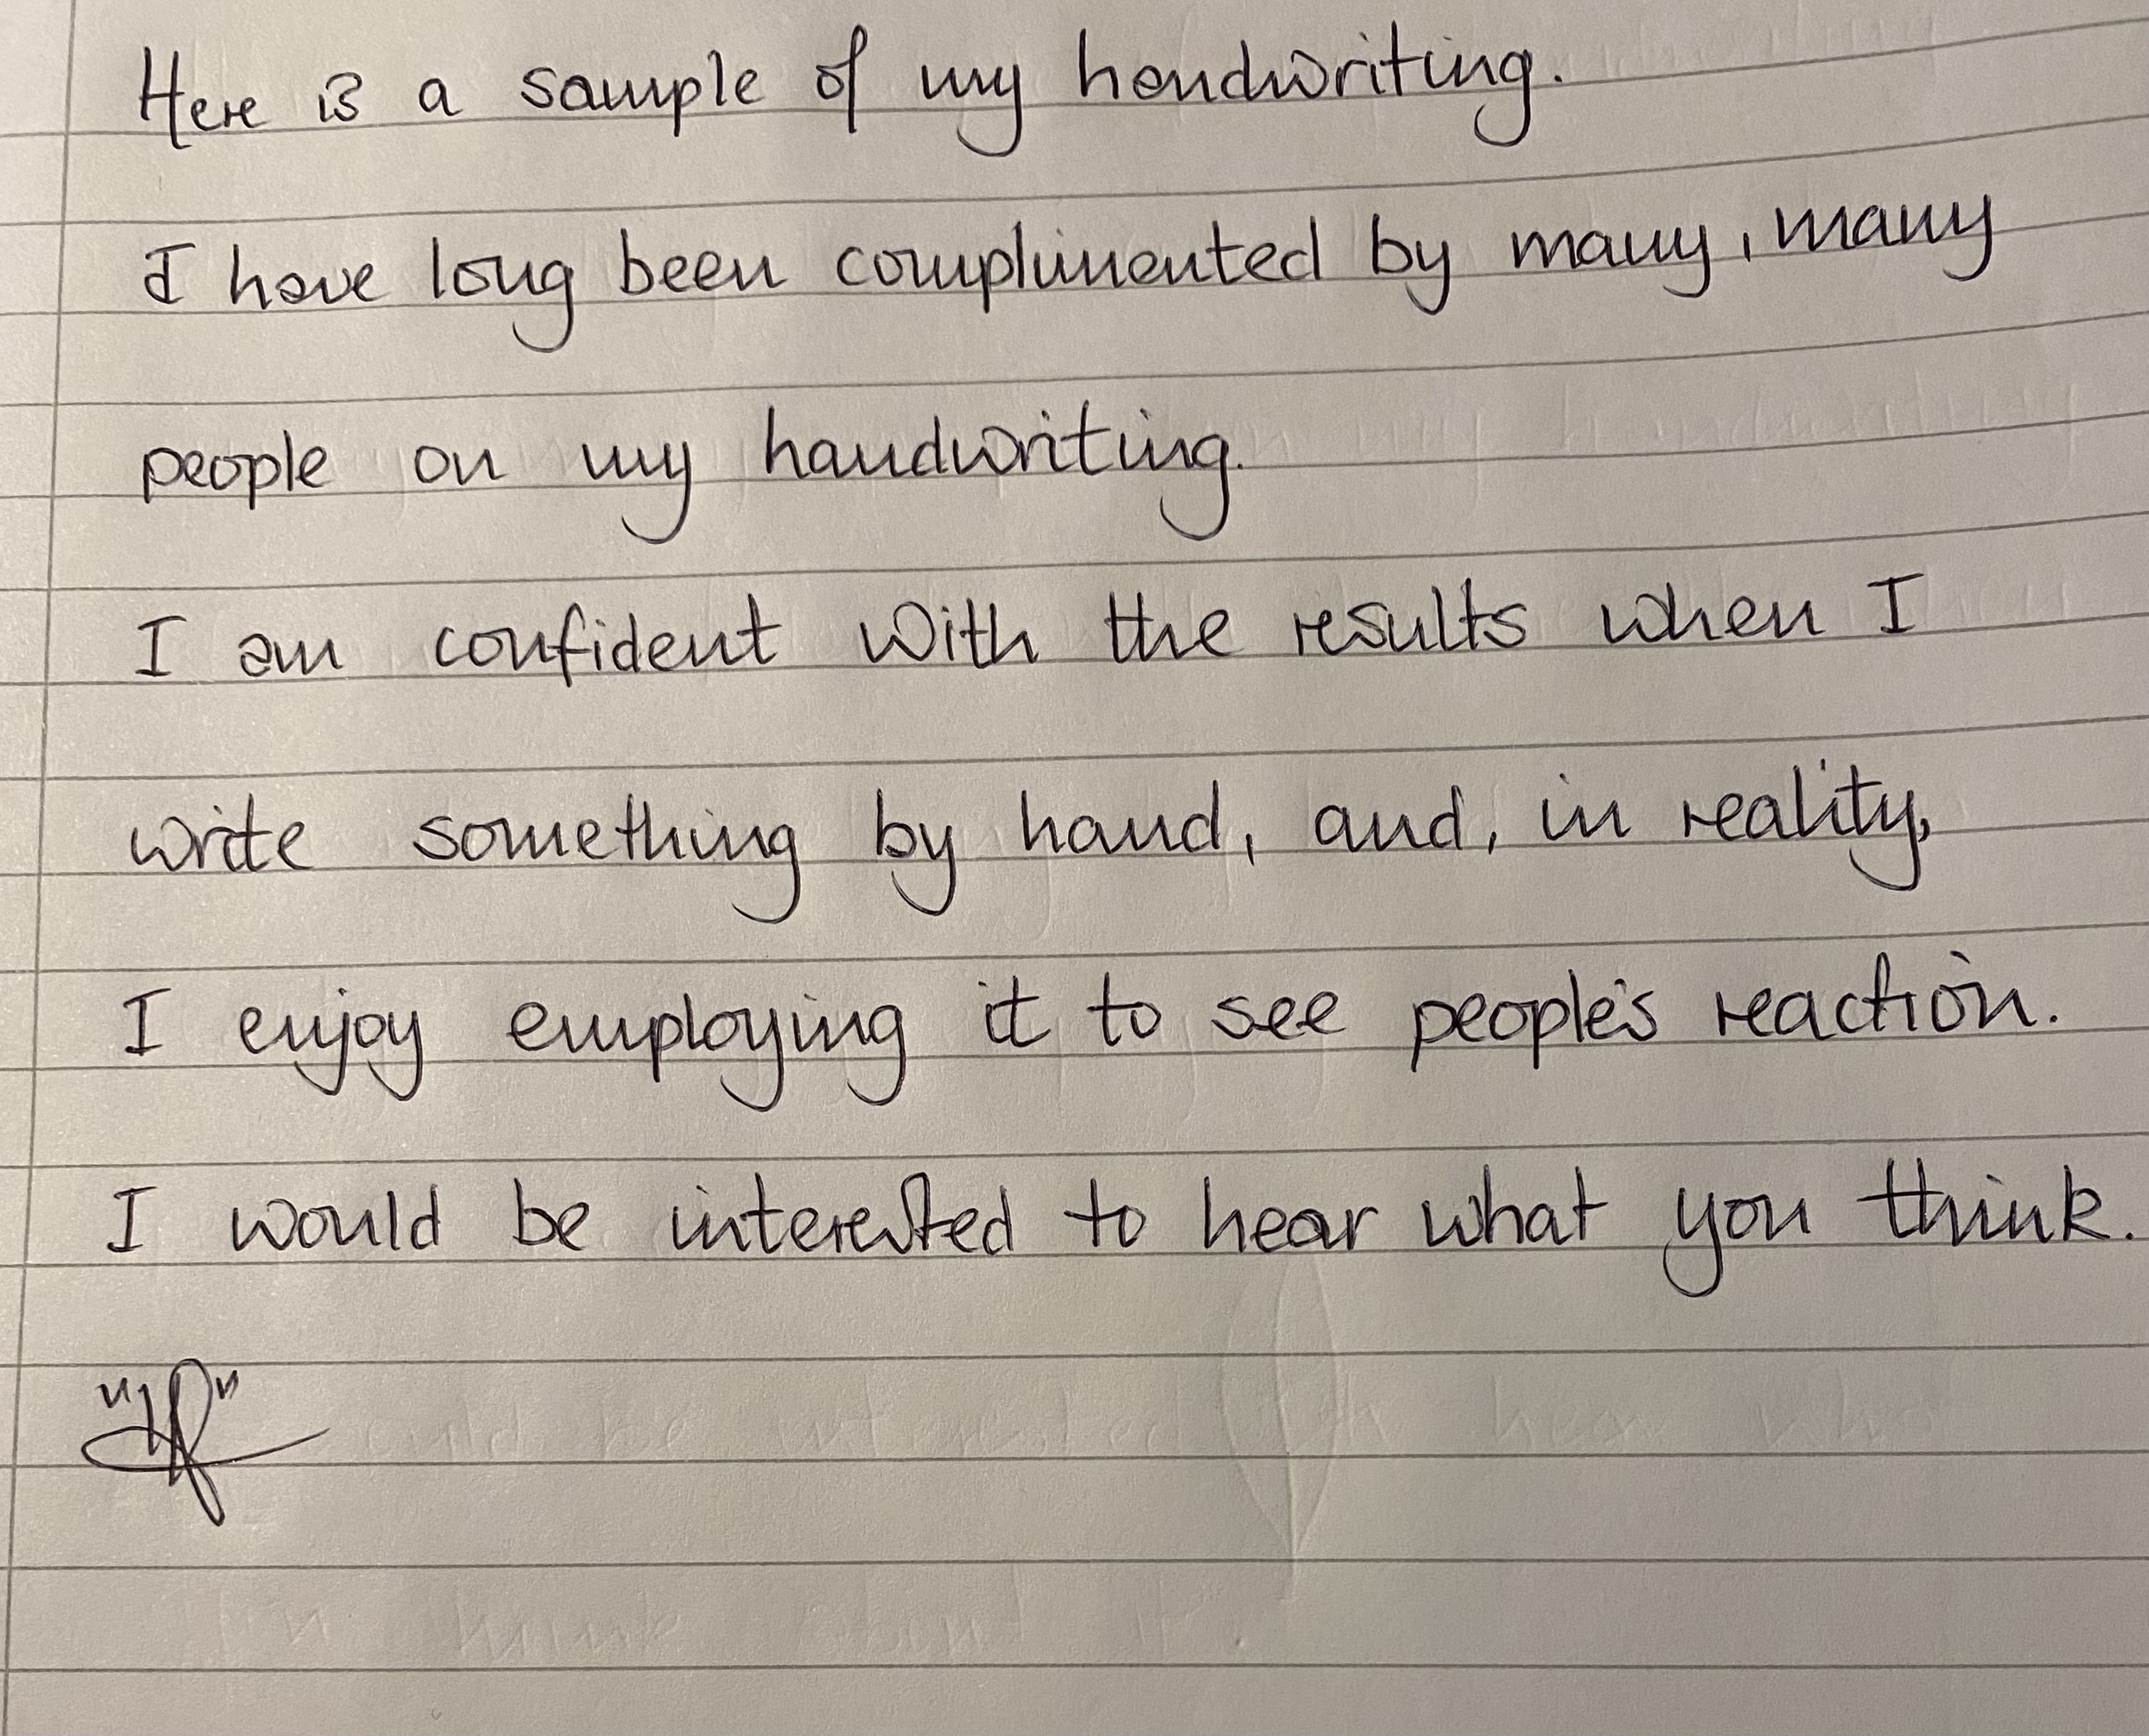 Here is a sample of my handwriting.
I have long been complimented by many, many
people on my handwriting.
I am confident with the results when I
write something by hand, and, in reality,
I enjoy employing it to see people's reaction.
I would be interested to hear what you think.